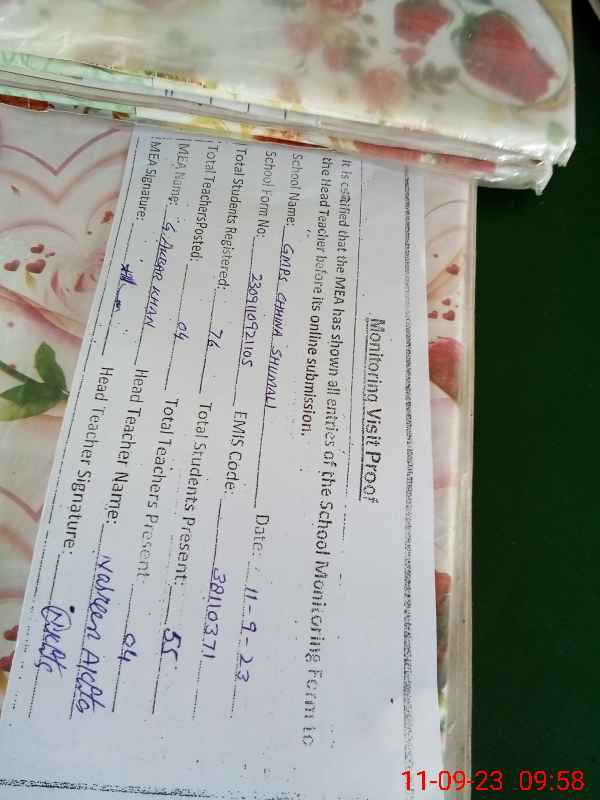 Monitoring Visit Proof
It is certified that the MEA has shown all entries of the School Monitoring Form to
the Head Teacher before its online submission.
School Name: GMPS CHHINA SHUMALI Date: 11-9-23
School Form No: 230910921105 EMIS Code: 38110371
Total Students Registered: 76 Total Students Present: 55
Total Teachers Posted: 04 Total Teachers Present: 04
MEA Name: KHAN Head Teacher Name: Nasreen Akhtar
MEA Signature: Head Teacher Signature:
11-09-23 09:58